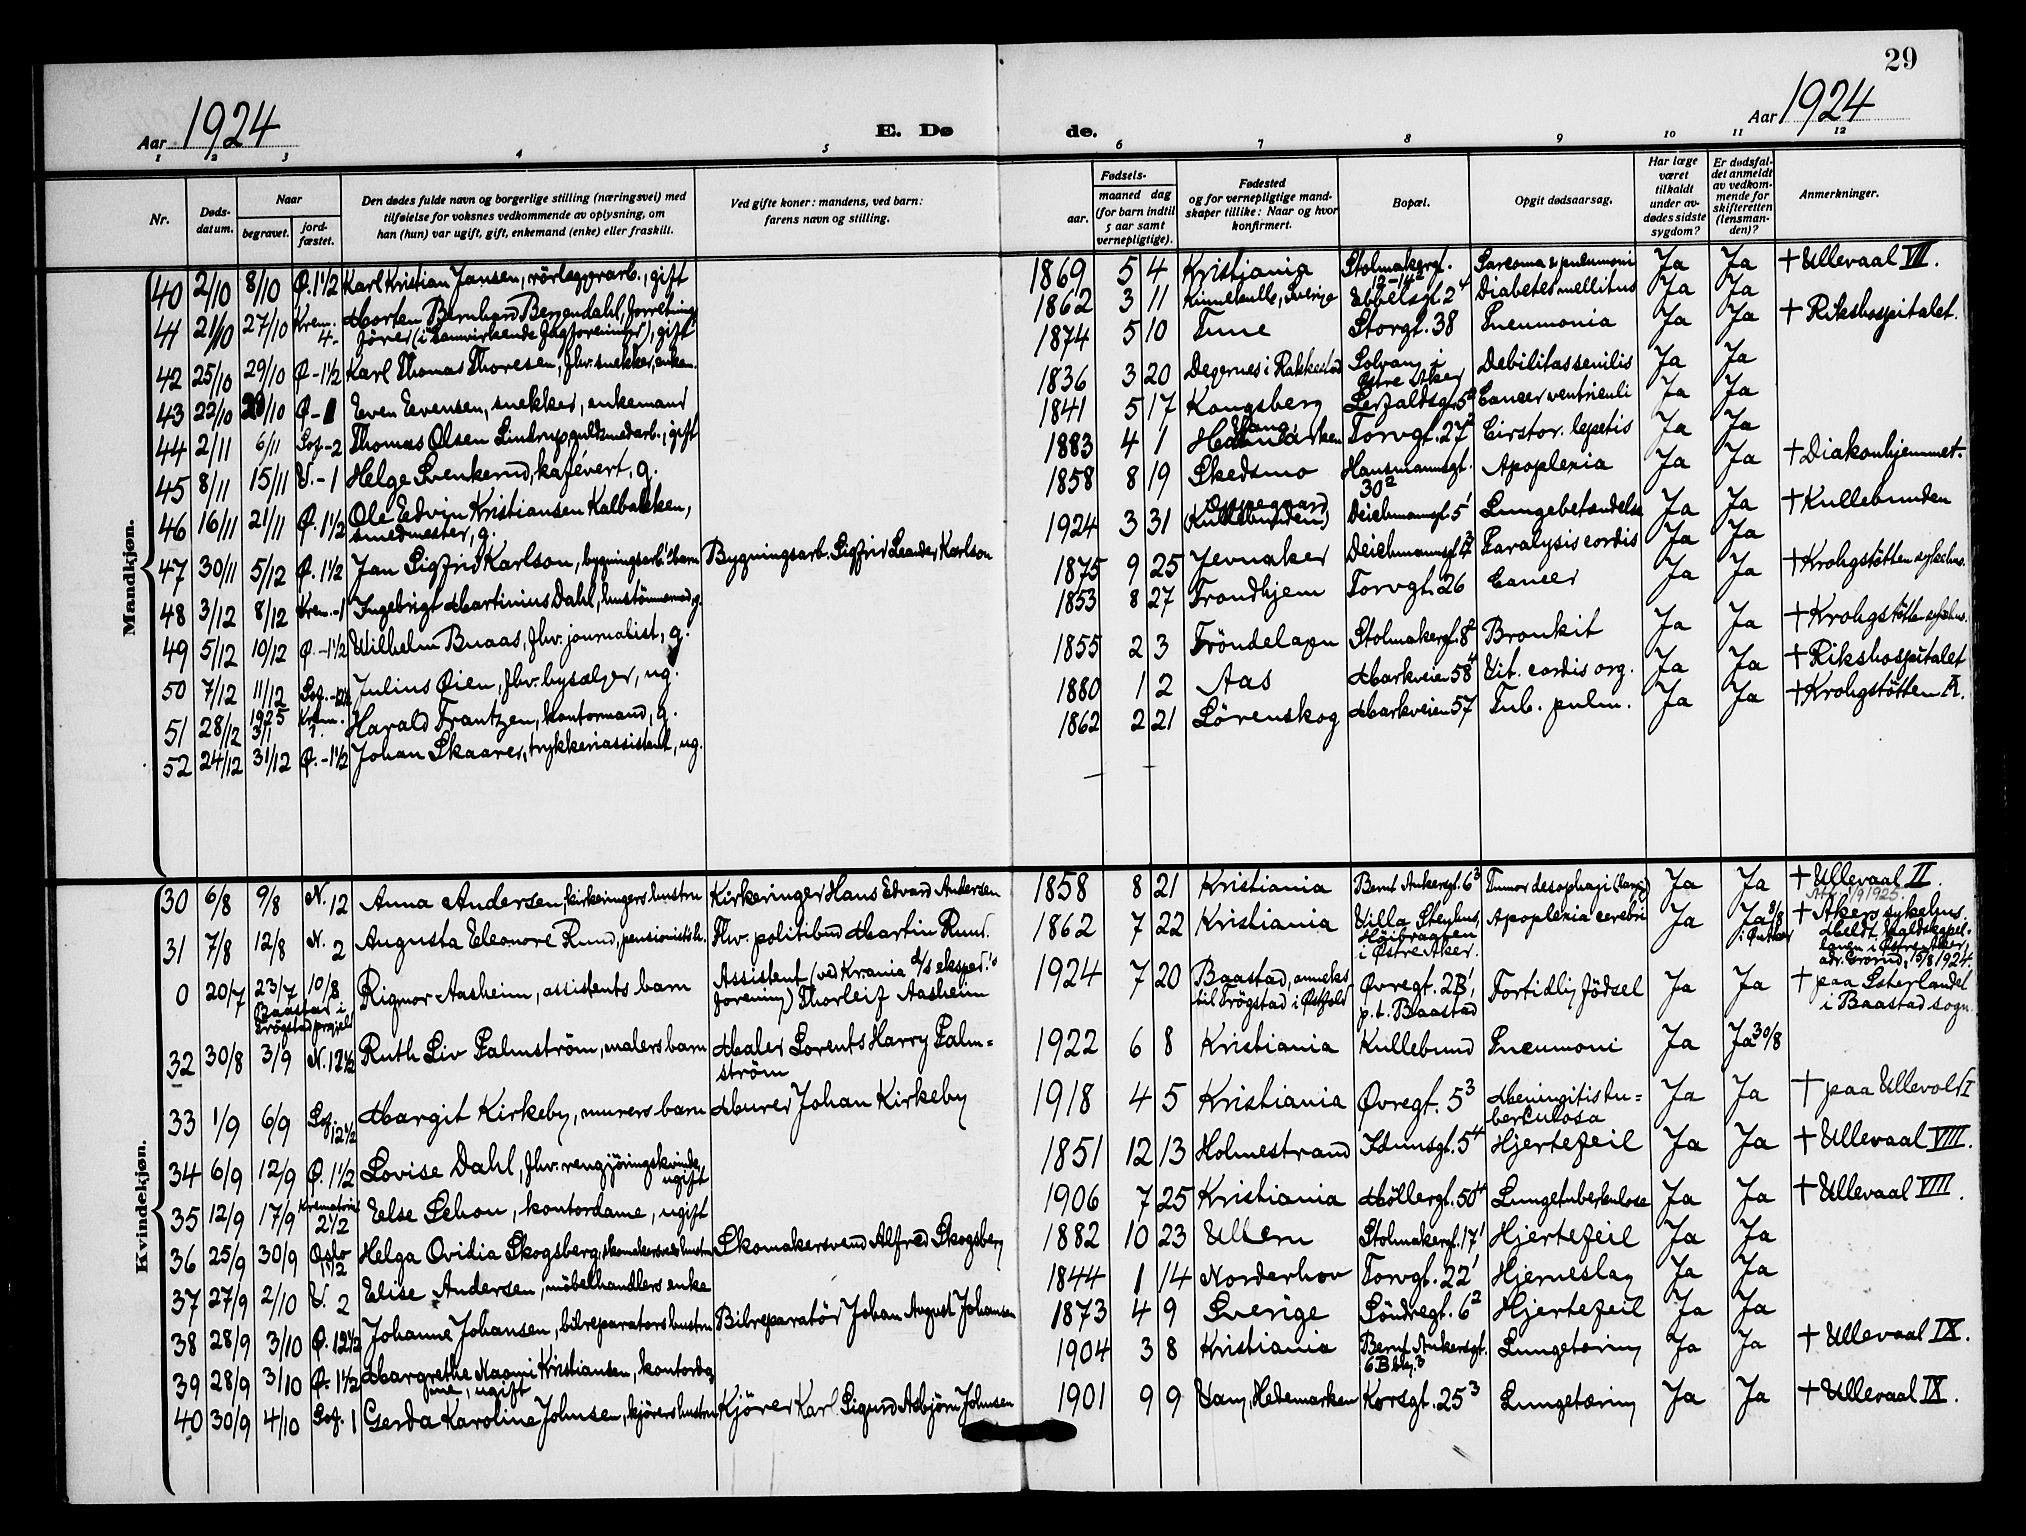 29
Aar 1924
E. Dø
de.
Aar 1924
1 2 3 4 5 6 7 8 9 10 11 12
Nr.
Døds-datum.
Naar
begravet.
jord-fæstet.
Den dødes fulde navn og borgerlige stilling (næringsvei) med
tilføielse for voksnes vedkommende av oplysning, om
han (hun) var ugift, gift, enkemand (enke) eller fraskilt.
Ved gifte koner: mandens, ved barn:
farens navn og stilling.
Fødsels-
aar.
maaned dag
(for barn indtil
5 aar samt
vernepligtige).
Fødested
og for vernepligtige mand-
skaper tillike: Naar og hvor
konfirmert.
Bopæl.
Opgit dødsaarsag.
Har læge
været
tilkaldt
under av-
dødes sidste
sygdom?
Er dødsfal-
det anmeldt
av vedkom-
mende for
skifteretten
(lensman-
den)?
Anmerkninger.
Mandkjøn.
40 2/10 8/10 Ø. 1 1/2 Karl Kristian Jansen, rörlæggerarb., gift 1869 5 4 Kristiania Stolmakergt. 12-14² Sarcoma & pneumoni Ja Ja + Ullevaal VII.
41 21/10 27/10 Krem. 4- Morten Bernhard Bergendahl, forretnings
förer (i Samvirkende Fagforeninger), gift 1862 3 11 Kinnekulle, Sverige Ebbelsgt. 2⁴ Diabetes mellitus Ja Ja
42 25/10 29/10 Ø - 1 1/2 Karl Thomas Thoresen, fhv. snekker, enkem. 1874 5 10 Tune Storgt. 38 Pneumonia Ja Ja + Rikshospitalet.
43 22/10 28/10 Ø - 1 Even Evensen, snekker, enkemand 1836 3 20 Degernes i Rakkestad Solvang i Østre Aker Debilitas senilis Ja Ja
44 2/11 6/11 Sof - 2 Thomas Olsen Lindrup, guldsmedarb., gift 1841 5 17 Kongsberg Lerfaldsgt. 5² Cancer ventriculi Ja Ja
45 8/11 15/11 V. - 1 Helge Svenkerud, kafévert, g. 1883 4 1 Vang Hedemarken Torvgt. 27² Cirrhor. hepatis Ja Ja
46 16/11 21/11 Ø. 1 1/2 Ole Edvin Kristiansen Kalbakken,
smedmester, g. 1858 8 19 Skedsmo Hausmannsgt. 30² Apoplexia Ja Ja + Diakonhjemmet.
47 30/11 5/12 Ø. 1 1/2 Jan Sigfrid Karlson, bygningsarb.s barn Bygningsarb. Sigfrid Leander Karlson 1924 3 31 Oppegaard (Kullebunden) Deichmansgt. 5¹ Lungebetændelse Ja Ja + Kullebunden
48 3/12 8/12 Krem. - 1 Ingebrigt Martinius Dahl, hustömmermd, g. 1875 9 25 Jevnaker Deichmansgt. Paralysis cordis Ja Ja
49 5/12 10/12 Ø. - 1 1/2 Wilhelm Buaas, fhv. journalist, g. 1853 8 27 Trondhjem Torvgt. 26 Cancer Ja Ja + Krohgstötten sykehus.
50 7/12 11/12 Sof. - 12 1/2 Julius Øien, fhv. bysælger, ug. 1855 2 3 Tröndelagen Stolmakergt. 8² Bronkit Ja Ja + Krohgstötten sykehus.
51 28/12 1925 3/1 Krem. 1. Harald Frantzen, kontormand, g. 1880 1 2 Aas Markveien 58⁴ Vit. cordis org. Ja Ja + Rikshospitalet
52 24/12 31/12 Ø. - 1 1/2 Johan Skaarer, trykkeriassistent, ug. 1862 2 21 Lörenskog Markveien 57 Tub. pulm. Ja Ja + Krohgstötten A.
Kvindekjøn.
30 6/8 9/8 N. 12 Anna Andersen, kirkeringers hustru Kirkeringer Hans Edvard Andersen 1858 8 21 Kristiania Bernt Ankersgt. 6³ Tumor desophagi (Laryng) Ja Ja + Ullevaal II.
31 7/8 12/8 N. 2 Augusta Eleonore Rund, pensionists h. Fhv. politibud Martin Rund. 1862 7 22 Kristiania Villa Stenhus,
Höibraaten
i Østre Aker. Apoplexia cerebri Ja Ja 8/8 + Akers sykehus.
0 20/7 23/7 10/8 Baastad i
Trögstad prgjeld Rigmor Aasheim, assistents barn Assistent (ved Krania A/S eksped.
forening) Thorleif Aasheim 1924 7 20 Baastad, anneks
til Trögstad i Østfold Øvregt. 2B¹,
p.t. Baastad Fortidlig födsel Ja Ja + paa Østerlandet
i Baastad sogn.
32 30/8 3/9 N. 12 1/2 Ruth Liv Palmström, malers barn Maler Lorents Harry Palm=
ström 1922 6 8 Kristiania Kullebund Pneumoni Ja Ja 30/8
33 1/9 6/9 Sof. 12 1/2 Margit Kirkeby, murers barn Murer Johan Kirkeby 1918 4 5 Kristiania Øvregt. 5³ Meningitis tu=
berculosa Ja Ja + paa Ullevol I
34 6/9 12/9 Ø. 1 1/2 Lovise Dahl, fhv. rengjöringskvinde,
ugift 1851 12 13 Holmestrand Idunsgt. 5⁴ Hjertefeil Ja Ja + Ullevaal VIII.
35 12/9 17/9 Krematoriet 2 1/2 Else Schou, kontordame, ugift 1906 7 25 Kristiania Möllergt. 50⁴ Lungetuberkulose Ja Ja + Ullevaal VIII.
36 25/9 30/9 Oslo 1 1/2 Helga Ovidia Skogsberg, skomakersvends hustru Skomakersvend Alfred Skogsberg 1882 10 23 Ullern Stolmakergt. 17¹ Hjertefeil Ja Ja
37 27/9 2/10 V. 2 Elise Andersen, möbelhandlers enke 1844 1 14 Norderhov Torvgt. 22¹ Hjerneslag Ja Ja
38 28/9 3/10 Ø. 12 1/2 Johanne Johansen, bilreparatørs hustru Bilreparatør Johan August Johansen 1873 4 9 Sverige Söndregt. 6² Hjertefeil Ja Ja
39 28/9 3/10 Ø. 1 1/2 Margrethe Naomi Kristiansen, kontorda=
me, ugift 1904 3 8 Kristiania Bernt Ankersgt.
6B bg.³ Lungetæring Ja Ja + Ullevaal IX.
40 30/9 4/10 Sof. 1 Gerda Karoline Johnsen, kjörers hustru Kjörer Karl Sigurd Asbjörn Johnsen 1901 9 9 Vang, Hedemarken Korsgt. 25³ Lungetæring Ja Ja + Ullevaal IX.